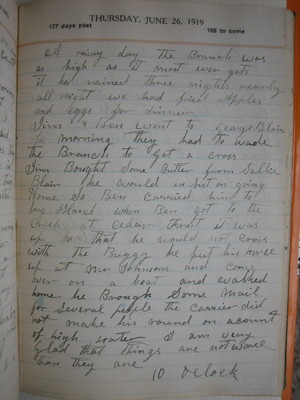 THURSDAY, JUNE 26, 1919
177 days past 188 to come
A rainy day the Branch was
as high as it most ever gets
it had rained three nights nearly
all night we had fried Apples
and eggs for dinner
Jim & Ben went to George Blain
morning they had to wade
the Branch to get a cross
Jim Bought Some Butter from Sallie
Blain he would insist on going
Home So Ben Carried him to
Island when Ben got to the
Creek at Cedar it was
up so that he would no Cross
with the Buggy he put his horse
up at Mr Johnsons and Come
over on a boat and walked
home he Brough Some Mail
for Several people the Carrier did
not make his round on acount
of high water I am very
glad that things are not worse
than they are
10 Oclock